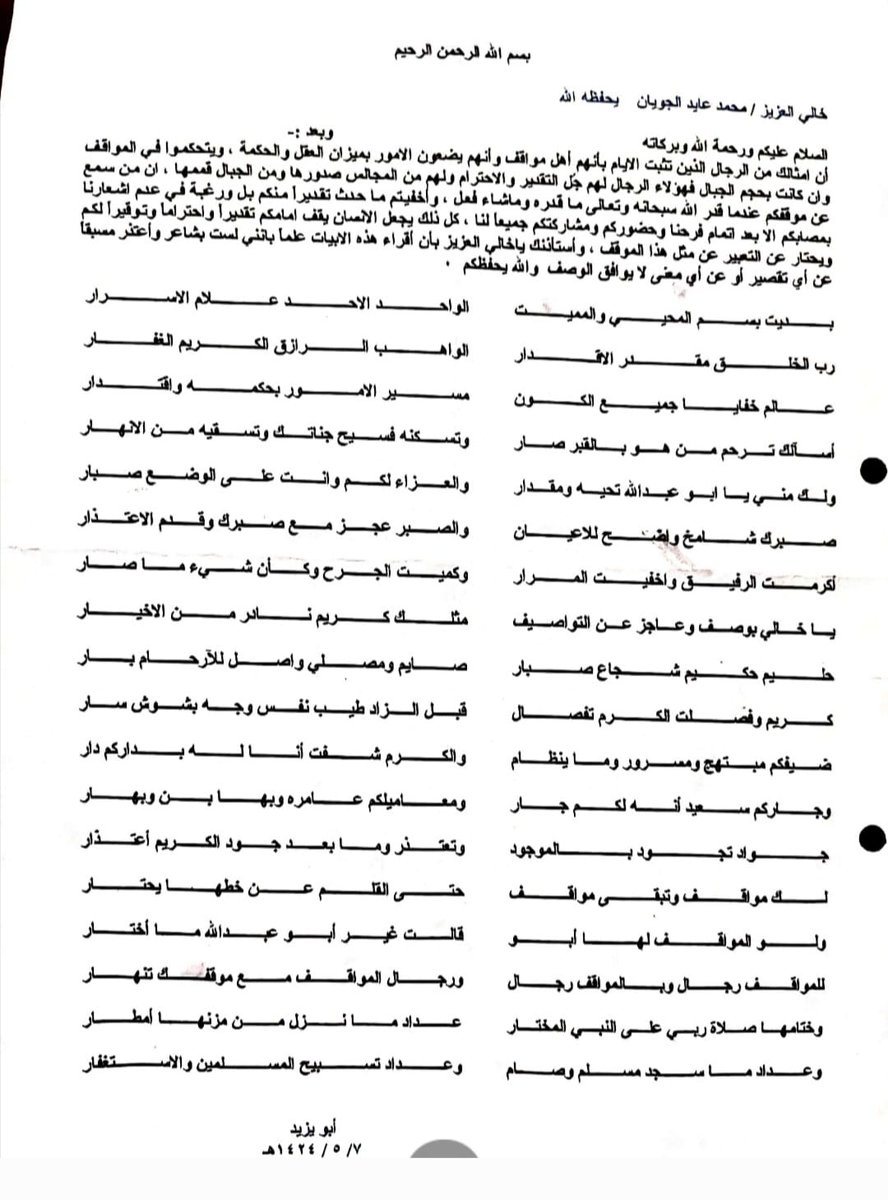 بسم الله الرحمن الرحيم
خالي العزيز / محمد عايد الجويان يحفظه الله
السلام عليكم ورحمة الله وبركاته وبعد :-
أن امثالك من الرجال الذين تثبت الايام بأنهم أهل مواقف وأنهم يضعون الامور بميزان العقل والحكمة ، ويتحكموا في المواقف
وان كانت بحجم الجبال فهؤلاء الرجال لهم جُل التقدير والاحترام ولهم من المجالس صدورها ومن الجبال قممها ، ان من سمع
عن موقفكم عندما قدر الله سبحانه وتعالى ما قدره وماشاء فعل ، وأخفيتم ما حدث تقديراً منكم بل ورغبة في عدم اشعارنا
بمصابكم الا بعد اتمام فرحنا وحضوركم ومشاركتكم جميعاً لنا ، كل ذلك يجعل الانسان يقف امامكم تقديراً واحتراماً وتوقيراً لكم
ويحتار عن التعبير عن مثل هذا الموقف ، وأستأذنك ياخالي العزيز بأن أقراء هذه الابيات علماً بانني لست بشاعر وأعتذر مسبقاً
عن أي تقصير أو عن أي معنى لا يوافق الوصف والله يحفظكم .
بديت بسم المحيي والمميت الواحد الاحد علام الاسرار
رب الخلق مقدر الاقدار الواهب الرازق الكريم الغفار
عالم خفايا جميع الكون مسير الامور بحكمه واقتدار
أسألك ترحم من هو بالقبر صار وتسكنه فسيح جناتك وتسقيه من الانهار
ولك مني يا ابو عبدالله تحيه ومقدار والعزاء لكم وانت على الوضع صبار
صبرك شامخ واضح للاعيان والصبر عجز مع صبرك وقدم الاعتذار
أكرمت الرفيق واخفيت المرار وكميت الجرح وكأن شيء ما صار
يا خالي بوصف وعاجز عن التواصيف مثلك كريم نادر من الاخيار
حليم حكيم شجاع صبار صايم ومصلي واصل للأرحام بار
كريم وفصلت الكرم تفصال قبل الزاد طيب نفس وجه بشوش سار
ضيفكم مبتهج ومسرور وما ينظام والكرم شفت أنا له بداركم دار
وجاركم سعيد أنه لكم جار ومعاميلكم عامره وبها بن وبهار
جواد تجود بالموجود وتعتذر وما بعد جود الكريم أعتذار
لك مواقف وتبقى مواقف حتى القلم عن خطها يحتار
ولو المواقف لها أبو قالت غير أبو عبدالله ما أختار
للمواقف رجال وبالمواقف رجال ورجال المواقف مع موقفك تنهار
وختامها صلاة ربي على النبي المختار عداد ما نزل من مزنها أمطار
وعداد ما سجد مسلم وصام وعداد تسبيح المسلمين والاستغفار
أبو يزيد
٧/ ٥ / ١٤٢٤هـ